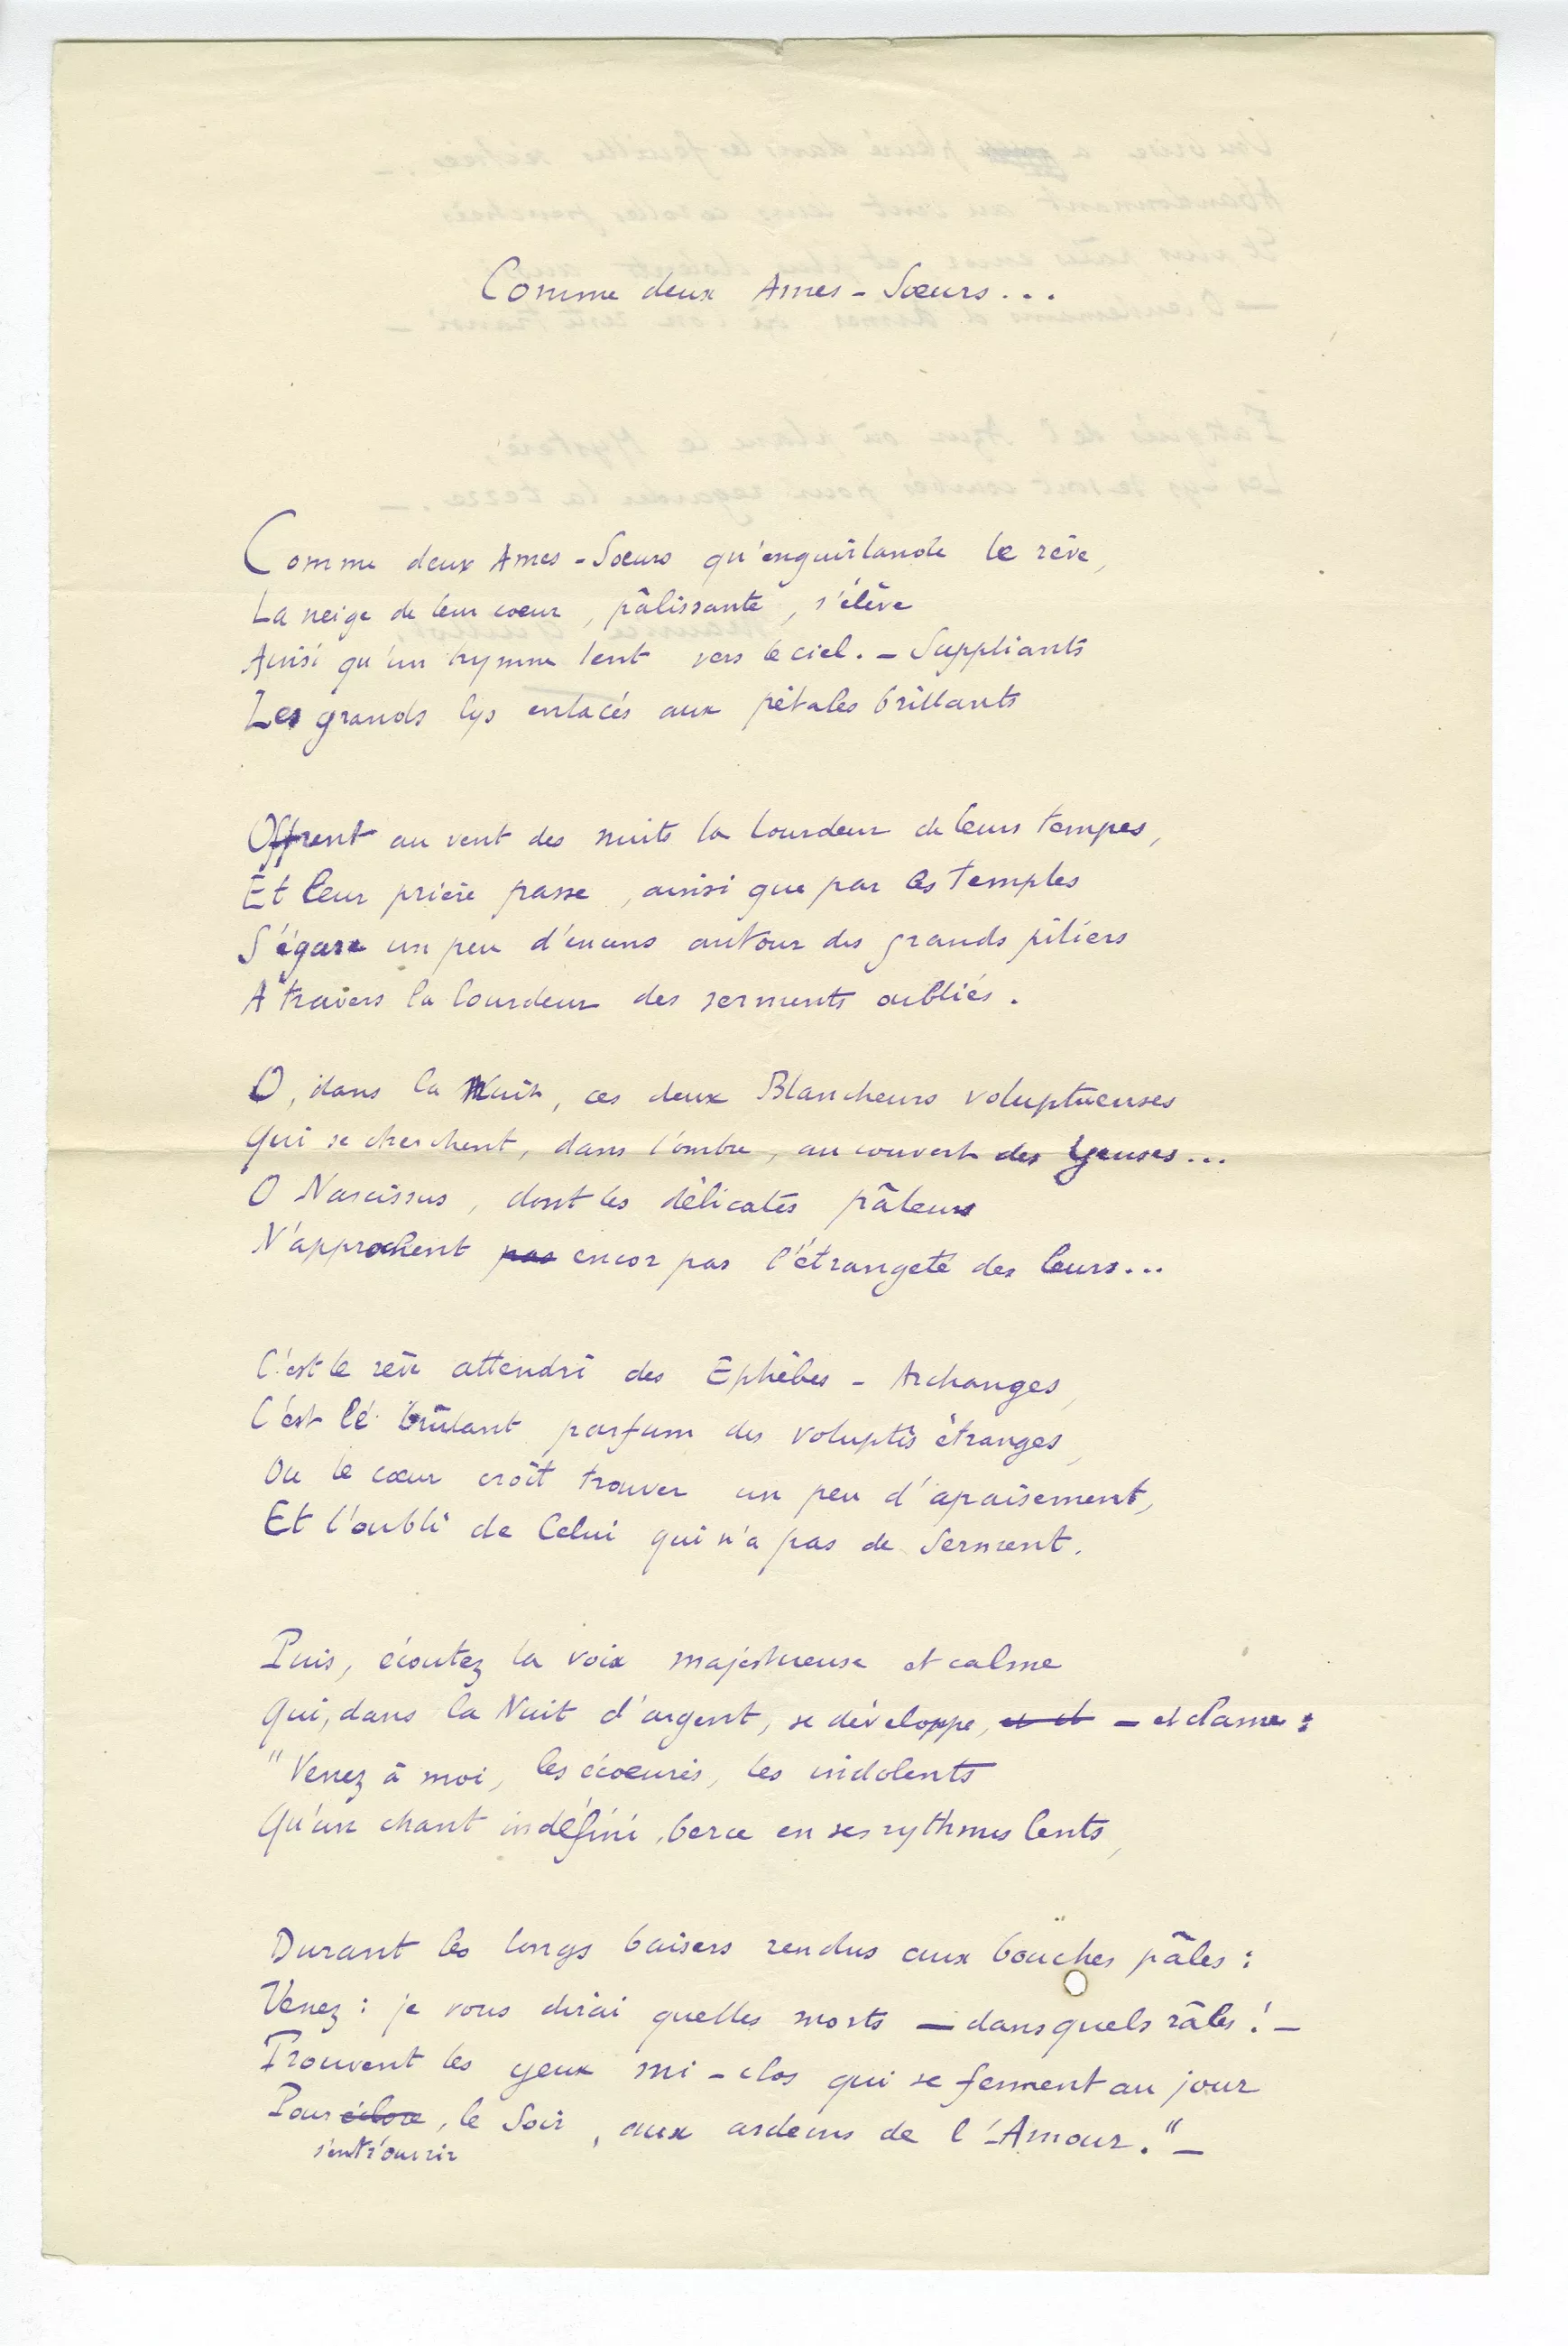 Comme deux Ames-Sœurs...
Comme deux Ames-Sœurs qu'enguirlande le rêve,
La neige de leur cœur, pâlissante, s'élève
Ainsi qu'un hymne lent vers le ciel. — Suppliants
Les grands lys enlacés aux pétales brillants
Offrent au vent des nuits la lourdeur de leurs tempes,
Et leur prière passe, ainsi que par les Temples
S'égare un peu d'encens autour des grands piliers
A travers la lourdeur des serments oubliés.
O, dans la Nuit, ces deux Blancheurs voluptueuses
Qui se cherchent, dans l'ombre, au couvert des Yeuses...
O Narcissus, dont les délicates pâleurs
N'approchent pas encor pas l'étrangeté des leurs...
C'est le rêve attendri des Ephèbes - Archanges,
C'est le brûlant parfum des voluptés étranges,
Ou le cœur croit trouver un peu d'apaisement,
Et l'oubli de Celui qui n'a pas de Serment.
Puis, écoutez la voix majestueuse et calme
Qui, dans la Nuit d'argent, se développe, — et clame :
"Venez à moi, les écoeurés, les indolents
Qu'un chant indéfini, berce en ses rythmes lents,
Durant les longs baisers rendus aux bouches pâles :
Venez : je vous dirai quelles morts — dans quels râles ! —
Trouvent les yeux mi-clos qui se ferment au jour
Pour éclore, le Soir, aux ardeurs de l'Amour." —
s'entr'ouvrir